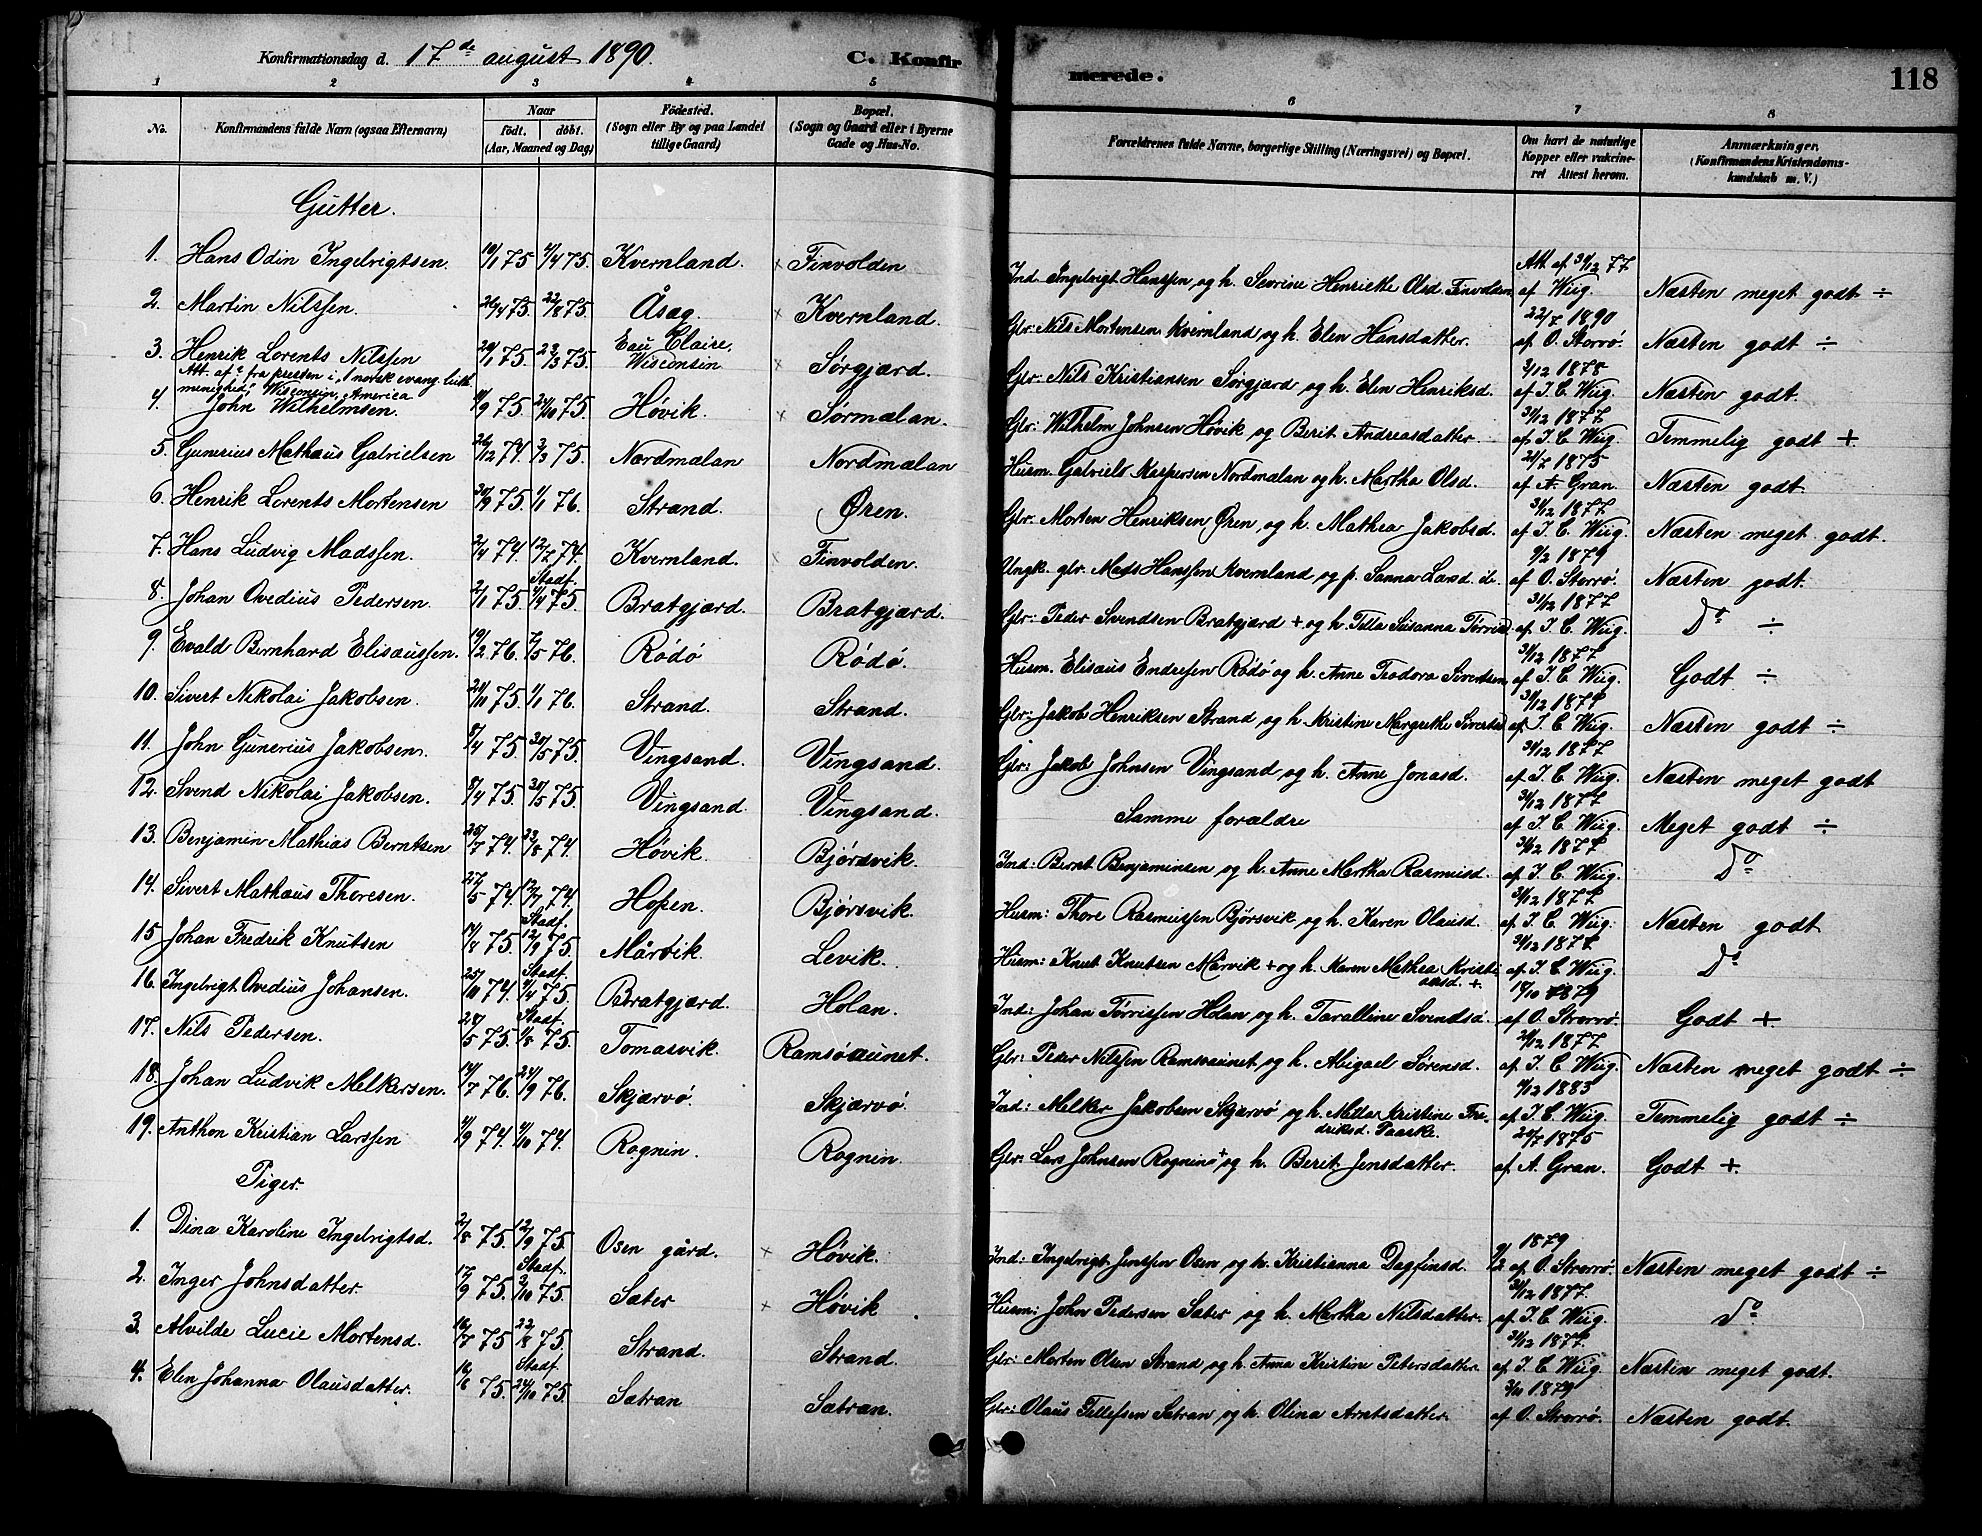 Konfirmationsdag d. 17de august 1890. C. Konfirmerede. 118
1 2 3 4 5 6 7 8
No. Konfirmandens fulde Navn (ogsaa Efternavn) Naar födt. döbt. (Aar, Maaned og Dag) Födested. (Sogn eller By og paa Landet tillige Gaard) Bopæl. (Sogn og Gaard eller i Byerne Gade og Hus-No. Forældrenes fulde Navne, borgerlige Stilling (Næringsvei) og Bopæl. Om havt de naturlige Kopper eller vakcineret Attest herom. Anmærkninger. (Konfirmandens Kristendomskundskab m. V.)
Gutter.
1. Hans Odin Ingelrigtsen 75 4/4 75 Kvernland. × Finvolden Ind: Ingelrigt Hanssen og h. Sevrine Henriette Olsd. Finvolden Att. af 31/12 77 af Wiig. Næsten meget godt ÷
2. Martin Nilssen. 26/4 75 22/8 75 Åsæg. × Kvernland. Glr: Nils Mortensen Kvernland og h. Elen Hansdatter. 22/7 1890 af O. Storrø. Næsten godt ÷
3. Henrik Lorents Nilssen 75 23/3 75 Eau Claire, Wisconsin × Sørgjærd. Glr: Nils Kristiansen Sørgjærd og h. Elen Henriksd. 3/12 1878 af I. C. Wiig. Næsten godt.
Att. af ? fra presten i "1 norsk evang. luth. menighed", Wisconsin, America
4. John Wilhelmsen. 75 75 Høvik. × Sørmælan. Glr: Wilhelm Johnsen Høvik og Berit Andreasdatter 31/12 1877 af I. C. Wiig. Temmelig godt +
5. Gunerius Mathæus Gabrielsen 26/12 74. 75. Nordmælan Nordmælan Husm. Gabriel Kaspersen Nordmælan og h. Martha Olsd. 21/7 1875 af A. Gran. Næsten godt.
6. Henrik Lorents Mortensen 75. 1/1 76. Strand. Øren. Glr: Morten Henriksen Øren, og h. Mathea Jakobsd. 31/12 1877 af I. C. Wiig. Næsten meget godt.
7. Hans Ludvig Madssen. 2/4 74. 12/7 74. Kvernland. × Finvolden. Ungk. glr. Mads Hanssen Kvernland og p. Sanna Larsd. ib. 9/2 1879 af O. Storrø. Næsten godt.
8. Johan Ovedius Pedersen. 2/1 75. Stadf. 4/4 75. Bratgjærd. Bratgjærd. Glr: Peder Svendsen Bratgjærd + og h. Susanna 31/12 1877 af I. C. Wiig. Do ÷
9. Evald Bernhard Elisæussen. 19/2 76. 7/5 76. Rödö Rödö. Husm. Elisæus Endresen Rödö og h. Anne Teodora Sivertsen 31/12 1877 af I. C. Wiig. Godt ÷
10. Sivert Nikolai Jakobsen. 75. 1/1 76. Strand. Strand. Glr: Jakob Henriksen Strand og h. Kristine Margrethe Sivertsd 31/12 1877 af I. C. Wiig. Næsten godt ÷
11. John Gunerius Jakobsen. 8/4 75. 30/5 75. Vingsand. Vingsand. Glr: Jakob Johnsen Vingsand og h. Anne Jonasd. 31/12 1877 af I. C. Wiig. Næsten meget godt
12. Svend Nikolai Jakobsen. 8/4 75. 30/5 75. Vingsand. Vingsand. Samme forældre 31/12 1877 af I. C. Wiig. Meget godt ÷
13. Benjamin Mathias Berntsen 25/7 74. 23/8 74. Høvik. Bjørsvik. Ind: Bernt Benjaminsen og h. Anne Martha Rasmusd. 31/12 1877 af I. C. Wiig. Do
14. Sivert Mathæus Thoresen. 27/5 74. 12/7 74. Hopen. Bjørsvik. Husm: Thore Rasmussen Bjørsvik og h. Karen Olausd. 31/12 1877 af I. C. Wiig. Næsten godt
15. Johan Fredrik Knutsen 75. Stadf. 12/9 75. Mårvik. Levik. Husm: Knut Knutsen Mårvik + og h. Karen Mathea Kristiansd. + 31/12 1877 af I. C. Wiig. Do
16. Ingelrigt Ovedius Johansen. 25/10 74. Stadf. 4/4 75. Bratgjærd. Holan. Ind: Johan Törrissen Holan og h. Taralline Svendsd. 18/10 1879 af O. Storrø. Godt +
17. Nils Pedersen. 75. Stadf. 1/8 75. Tomasvik. Ramsöaunet. Glr: Peder Nilssen Ramsøaunet og h. Abigael Sörensd. 1877 af I. C. Wiig. Næsten meget godt ÷
18. Johan Ludvik Melkersen. 14/7 76. 24/9 76. Skjærvö. Skjærvö. Ind: Melker Jakobsen Skjærvö og h. Metta Kristine Fredriksd. Paaske. 7/12 1883 af I. C. Wiig. Temmelig godt ÷
19. Anthon Kristian Larssen 74. 74. Rognin. Rognin. Glr: Lars Johnsen Rognin + og h. Berit Jensdatter. 1875 af A. Gran. Godt +
Piger.
1. Dina Karoline Ingelrigtsd. 2/8 75. 12/9 75. Osen gård. × Høvik. Ind: Ingelrigt Jenssen Osen og h. Kristianna Dagfinsd. 1879 9/2 af O. Storrø. Næsten meget godt ÷
2. Inger Johnsdatter. 75. Stadf. 75. Sæter × Høvik Husm: John Pedersen Sæter og h. Martha Nilsdatter. 31/12 1877. af I. C. Wiig. Do
3. Alvilde Lucie Mortensd. 16/7 75 22/8 75. Strand. Strand. Glr: Morten Olsen Strand og h. Anna Kristin Petersdatter. 31/12 1877 af I. C. Wiig. Næsten meget godt.
4. Elen Johanna Olausdatter. 75. Stadf. 24/10 75. Sætran Sætran. Glr: Olaus Tellefsen Sætran og h. Olina Arntsdatter. 1879 af O. Storrø. Næsten godt.